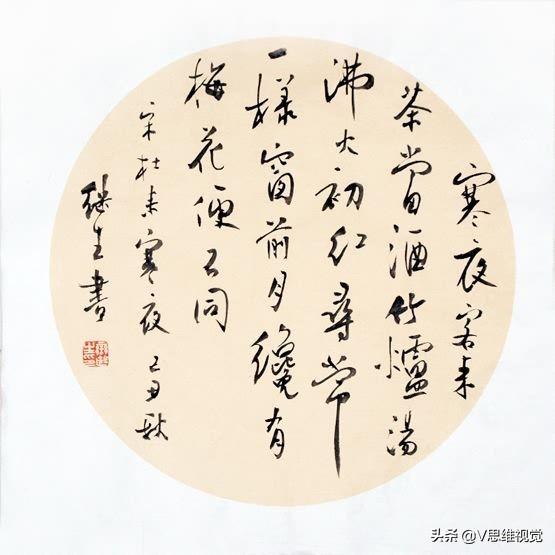 寒夜客来
茶当酒竹爐湯
沸火初红尋常
一樣窗前月纔有
梅花便不同
宋杜耒寒夜 己丑秋
继生書
头条 @V思维视觉